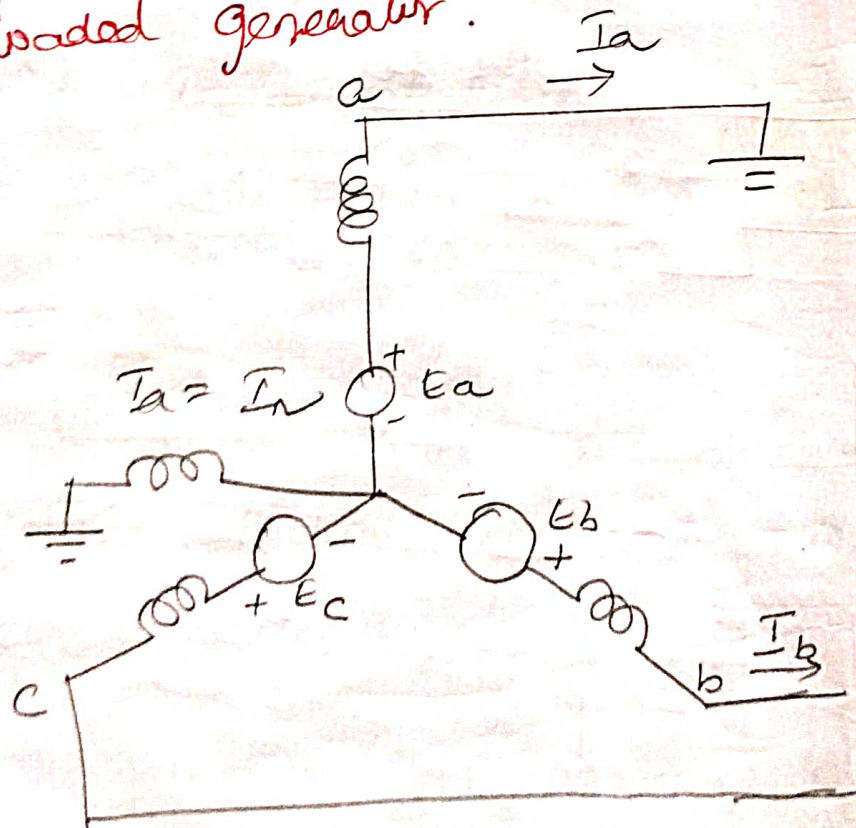 generator.
Ia
a
+
Ia = In
Ea
-
-
Eb
+
-
+ Ec
Ib
b
C